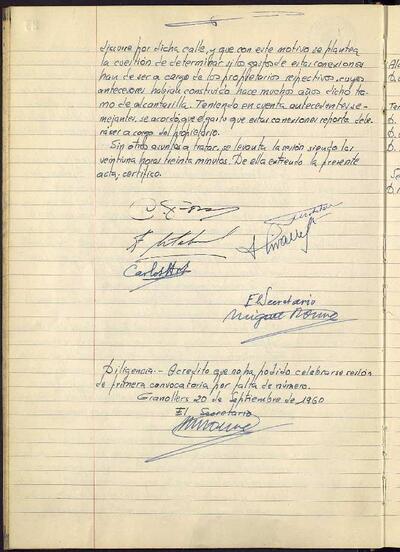 discurre por dicha calle, y que con este motivo se plantea
la cuestión de determinar si los gastos de estas conexiones
han de ser a cargo de los propietarios respectivos, cuyos
antecesores habían construído hace muchos años dicho ra-
mo de alcantarilla. Teniendo en cuenta antecedentes se-
mejantes, se acordó que el gasto que estas conexiones reporte debe-
rá ser a cargo del propietario.
Sin otros asuntos a tratar, se levanta la sesión siendo las
veintiuna horas treinta minutos. De ella extiendo la presente
acta, certifico.
Carlos
El Secretario
Miguel
Diligencia.- Acredito que no ha podido celebrarse sesión
de primera convocatoria por falta de número.
Granollers 20 de Septiembre de 1960
El Secretario